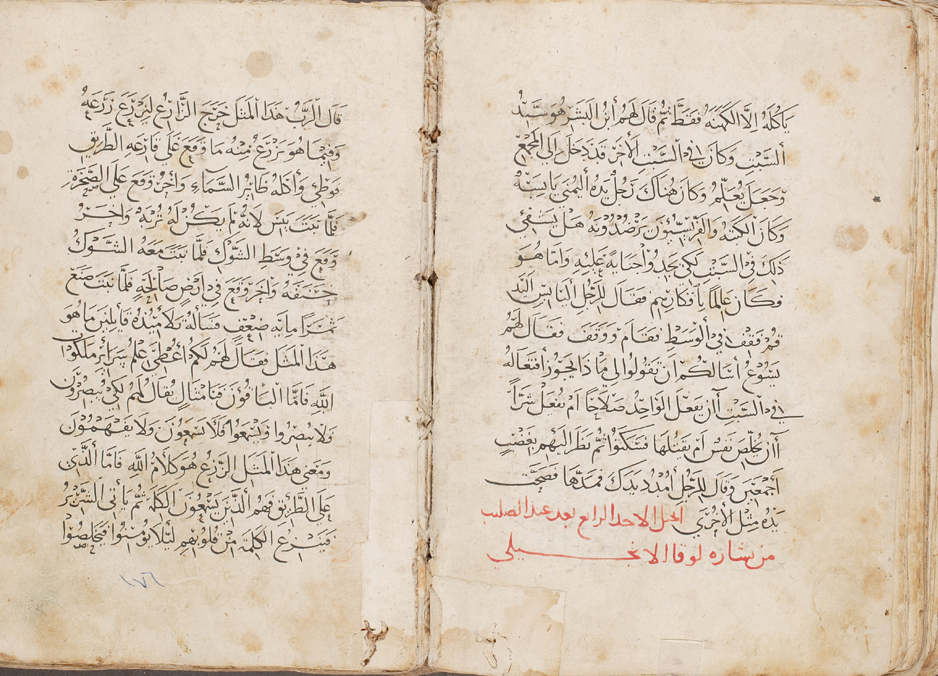 ياكله الا الكهنه فقط ثم قال لهم ابن البشر هو سيد
السبت وكان في السبت الاخر قد دخل الى المجمع
وجعل يعلم وكان هناك رجل يده اليمنى يابسه
وكان الكتبه والفريسيون يرصدونه هل يشفي
ذلك في السبت لكي يجدوا حنايه عليه واما هو
فكان عالما بافكارهم فقال للرجل اليابس اليد
قم فقف في الوسط فقام ووقف فقال لهم
يشوع انا اسالكم ان تقولوا لي ماذا يجوز افتعاله
في السبت اان يفعل الواحد صلاحا ام يفعل شرا
اان يخلص نفس ام يقتلها فسكتوا ثم نظر اليهم بغضب
اجمعين وقال للرجل امدد يدك فمدها فصحت
يده مثل الاخرى انجيل الاحد الرابع بعد عيد الصليب
من بشاره لوقا الانجيلي
قال الرب هذا المثل خرج الزارع ليزرع زرعه
وفيما هو يزرع منه ما وقع على قارعه الطريق
فوطئ واكله طائر السماء واخر وقع على الصخره
فلما نبت يبس لانه لم يكن له ثرىه واخر
وقع في وسط الشوك فلما نبت معه الشوك
خنقه واخر وقع في ارض صالحه فلما نبت صنع
ثمرا مايه ضعف فساله تلاميذه قايلين ما هو
هذا المثل فقال لهم لكم اعطي علم سرائر ملكوت
الله فاما الباقون فبامثال يقال لهم لكي يبصرون
ولا يبصروا ويسمعوا فلا يسمعون ولا يفهمون
ومعنى هذا المثل الزرع هو كلام الله فاما الذي
على الطريق فهم الذين يسمعون الكلمه ثم ياتي الشرير
فينزع الكلمه من قلوبهم لئلا يومنوا فيخلصوا
١٧٦